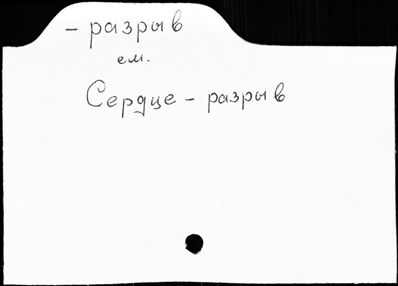 - разрыв
см.
Сердце - разрыв